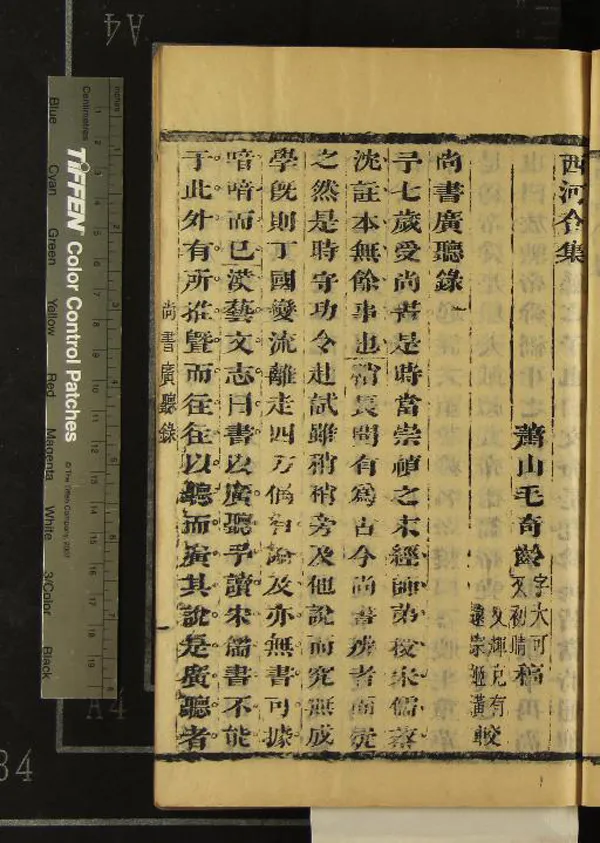 西河合集
蕭山毛奇齡字大可又初晴稿
文輝克有較
遠宗姬潢
尚書廣聽錄一
予七歲受尚書是時當崇禎之末經師弟授宋儒蔡
沈註本無餘事也稍長聞有爲古今尚書辨者而疑
之然是時守功令赴試雖稍稍旁及他說而究無成
學旣則丁國變流離走四方偶有論及亦無書可據
喑喑而已漢藝文志曰書以廣聽予讀宋儒書不能
于此外有所推暨而往往以聽而廣其說是廣聽者
尚書廣聽錄
A4
inches
Centimetres
TIFFEN Color Control Patches
© The Tiffen Company, 2007
Blue
Cyan
Green
Yellow
Red
Magenta
White
3/Color
Black
A4
34